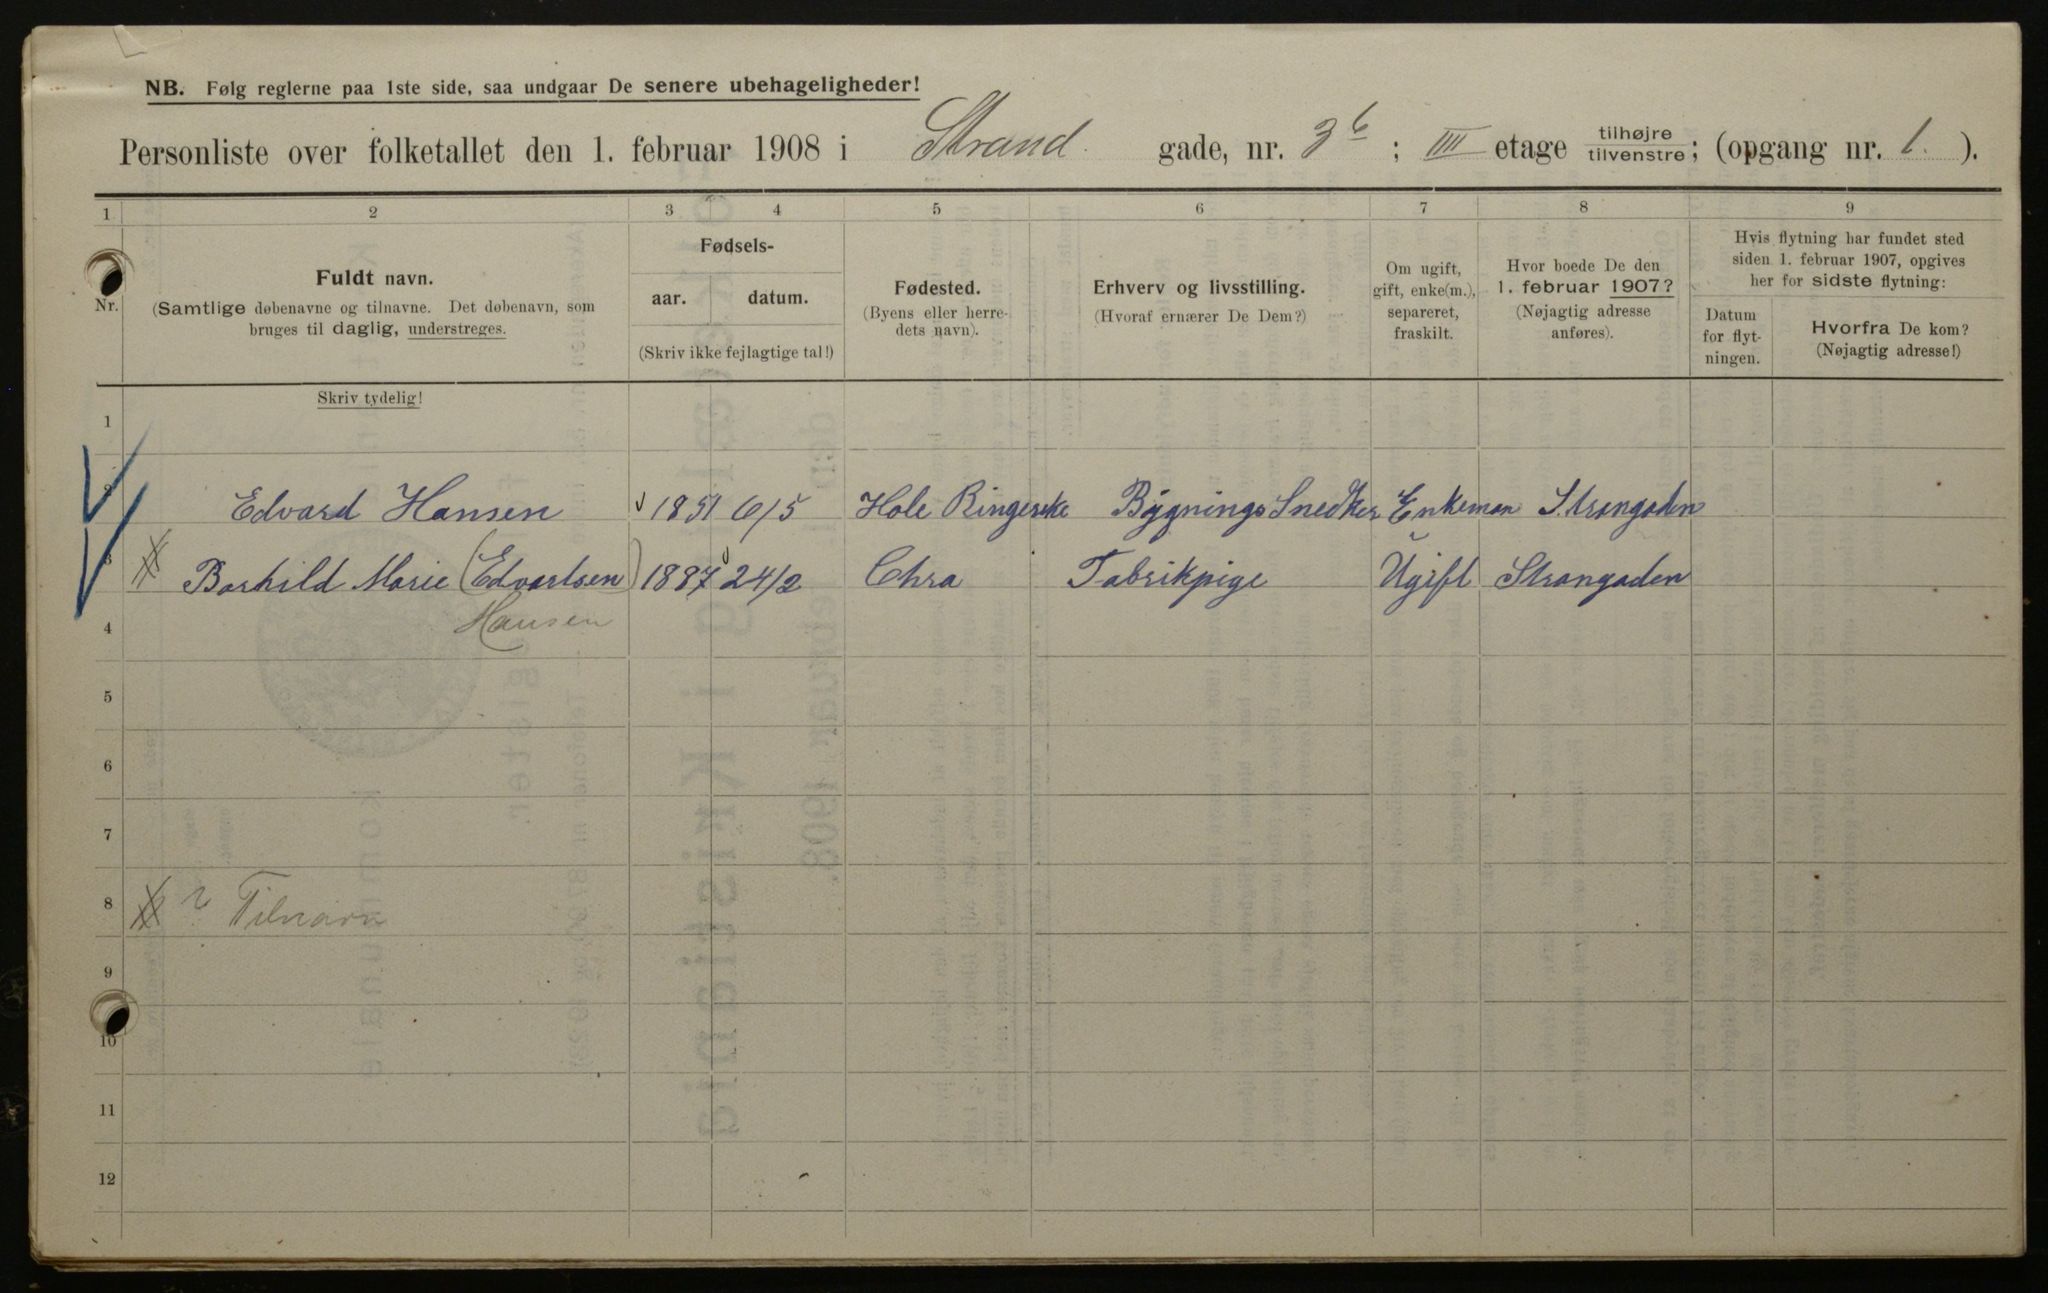 NB. Følg reglerne paa 1ste side, saa undgaar De senere ubehageligheder!
Personliste over folketallet den 1. februar 1908 i Strand gade, nr. 3b; III etage tilhøjre tilvenstre; (opgang nr. 1.).
1 2 3 4 5 6 7 8 9
Nr. Fuldt navn. (Samtlige døbenavne og tilnavne. Det døbenavn, som bruges til daglig, understreges.
Fødsels- aar. datum. (Skriv ikke fejlagtige tal!)
Fødested. (Byens eller herredets navn).
Erhverv og livsstilling. (Hvoraf ernærer De Dem?)
Om ugift, gift, enke(m.), separeret, fraskilt.
Hvor boede De den 1. februar 1907? (Nøjagtig adresse anføres).
Hvis flytning har fundet sted siden 1. februar 1907, opgives her for sidste flytning:
Datum for flytningen.
Hvorfra De kom? (Nøjagtig adresse!)
Skriv tydelig!
1
2 Edvard Hansen 1851 6/5 Hole Ringereke Bygnings Snedker Enkeman Strangaden
3 Borhild Marie (Edvartsen) 1887 24/2 Chra Fabrikpige Ugift Strangaden
Hansen
4
5
6
7
8 Tilnavn
9
10
11
12